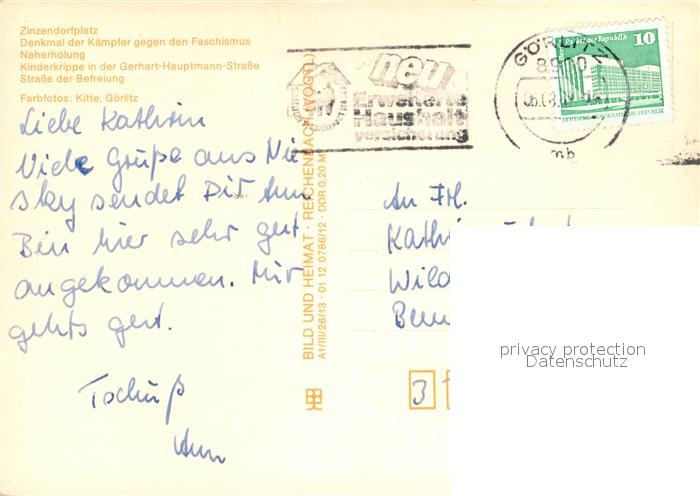 Zinzendorfplatz
Denkmal der Kämpfer gegen den Faschismus
Naherholung
Kinderkrippe in der Gerhart-Hauptmann-Straße
Straße der Befreiung
Farbfotos: Kitte, Görlitz
Liebe Kathrin
Viele Grüße aus Nie
sky sendet Dir
Bin hier sehr gut
angekommen. Mir
gehts gut.
Tschüß
BILD UND HEIMAT · REICHENBACH (VOGTL)
A1/III/26/13 · 01 12 0786/12 · DDR 0,20 M
neu
Erweiterte
Haushalt
versicherung
GÖRLITZ
mb
10
Palast der Republik
DEUTSCHE DEMOKRATISCHE REPUBLIK
An Frl.
3
privacy protection
Datenschutz